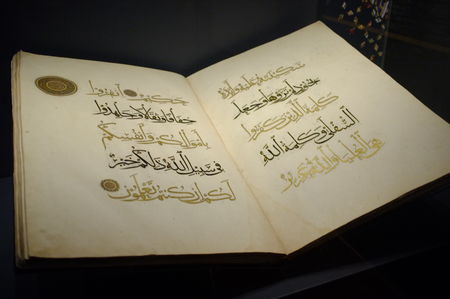 سكينته عليه وأيده
بجنود لم تروها وجعل
كلمة الذين كفروا
السفلى وكلمة الله
هي العليا والله عزيز
حكيم انفروا
خفافا وثقالا وجاهدوا
بأموالكم وأنفسكم
في سبيل الله ذلكم خير
لكم إن كنتم تعلمون